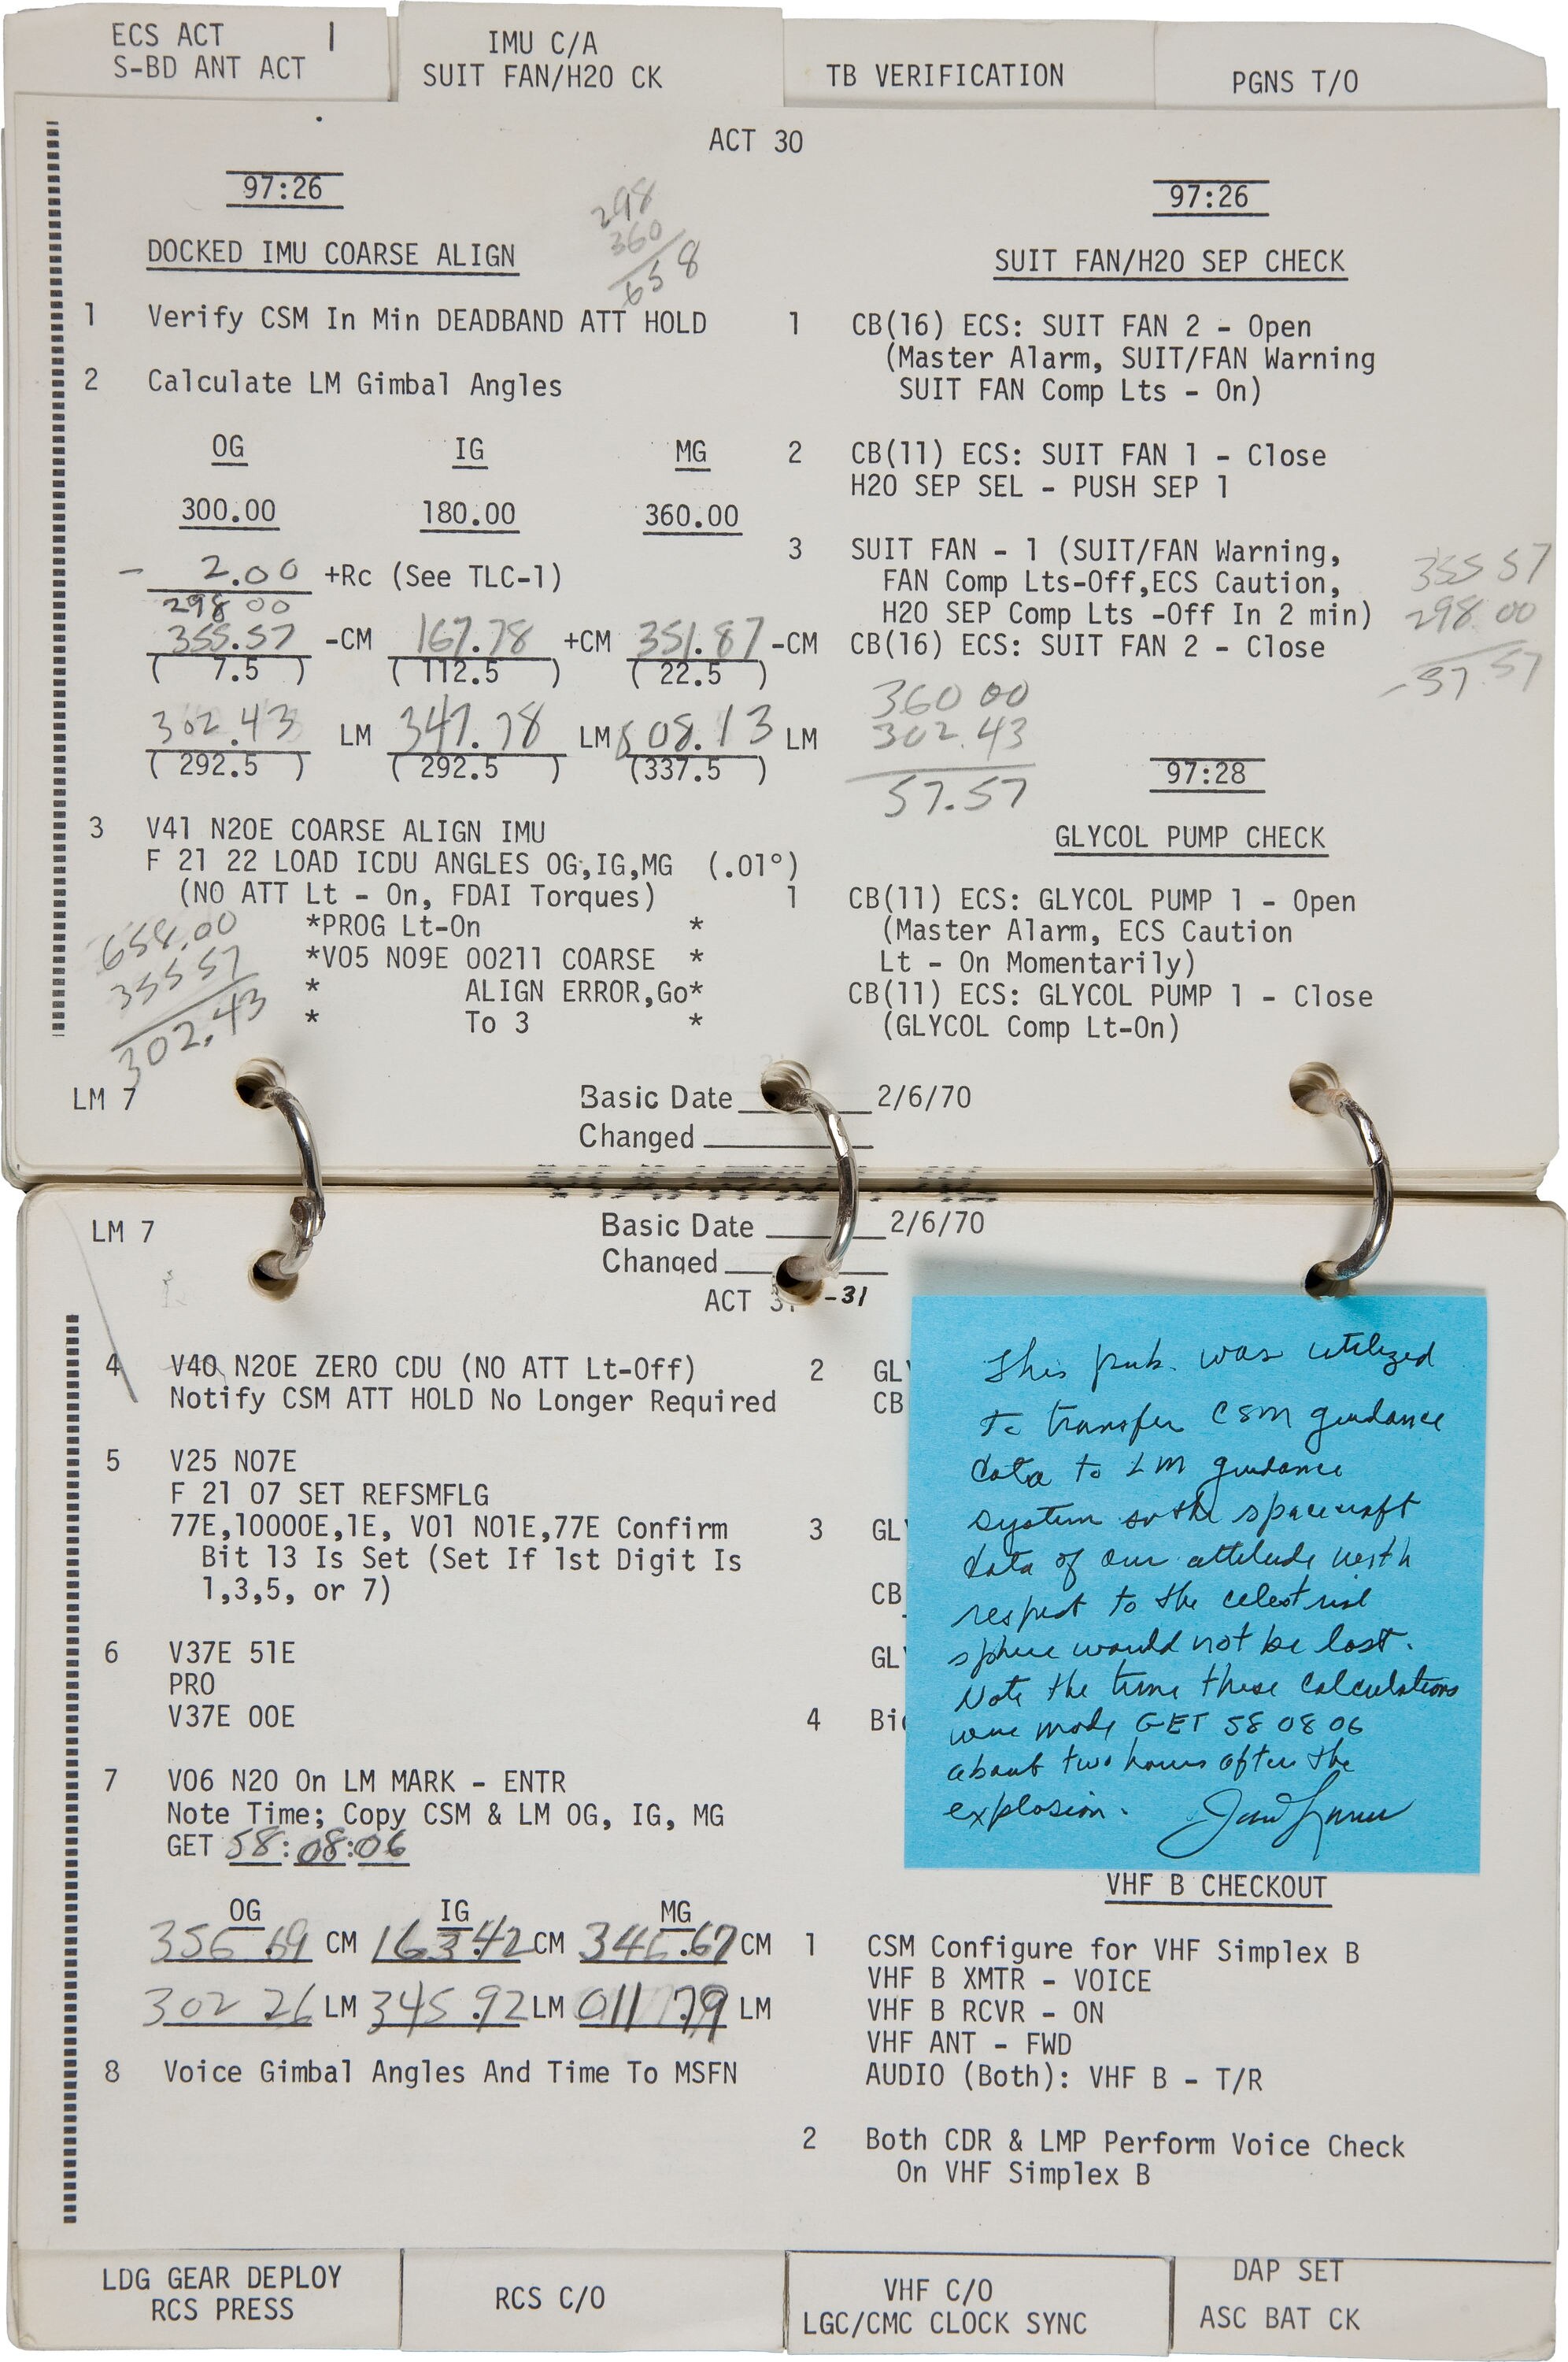 ECS ACT 1
S-BD ANT ACT
IMU C/A
SUIT FAN/H2O CK
TB VERIFICATION
PGNS T/O
ACT 30
97:26
298
360
658
DOCKED IMU COARSE ALIGN
1 Verify CSM In Min DEADBAND ATT HOLD
2 Calculate LM Gimbal Angles
OG IG MG
300.00 180.00 360.00
- 2.00 +Rc (See TLC-1)
298 00
355.57 -CM 167.78 +CM 351.87 -CM
( 7.5 ) ( 112.5 ) ( 22.5 )
302.43 LM 347.78 LM 008.13 LM
( 292.5 ) ( 292.5 ) (337.5 )
3 V41 N20E COARSE ALIGN IMU
F 21 22 LOAD ICDU ANGLES OG,IG,MG (.01°)
(NO ATT Lt - On, FDAI Torques)
*PROG Lt-On *
*V05 N09E 00211 COARSE *
* ALIGN ERROR,Go*
* To 3 *
658.00
355 57
302.43
97:26
SUIT FAN/H2O SEP CHECK
1 CB(16) ECS: SUIT FAN 2 - Open
(Master Alarm, SUIT/FAN Warning
SUIT FAN Comp Lts - On)
2 CB(11) ECS: SUIT FAN 1 - Close
H2O SEP SEL - PUSH SEP 1
3 SUIT FAN - 1 (SUIT/FAN Warning,
FAN Comp Lts-Off,ECS Caution,
H2O SEP Comp Lts -Off In 2 min)
CB(16) ECS: SUIT FAN 2 - Close
355 57
298 00
-57.57
360 00
302.43
57.57
97:28
GLYCOL PUMP CHECK
1 CB(11) ECS: GLYCOL PUMP 1 - Open
(Master Alarm, ECS Caution
Lt - On Momentarily)
CB(11) ECS: GLYCOL PUMP 1 - Close
(GLYCOL Comp Lt-On)
LM 7
Basic Date 2/6/70
Changed
LM 7
Basic Date 2/6/70
Changed
ACT 31 -31
4 V40 N20E ZERO CDU (NO ATT Lt-Off)
Notify CSM ATT HOLD No Longer Required
5 V25 N07E
F 21 07 SET REFSMFLG
77E,10000E,1E, V01 N01E,77E Confirm
Bit 13 Is Set (Set If 1st Digit Is
1,3,5, or 7)
6 V37E 51E
PRO
V37E 00E
7 V06 N20 On LM MARK - ENTR
Note Time; Copy CSM & LM OG, IG, MG
GET 58:08:06
OG IG MG
356.69 CM 163.42 CM 346.67 CM
302 26 LM 345.92 LM 011 79 LM
8 Voice Gimbal Angles And Time To MSFN
2 GL
CB
3 GL
CB
GL
4 Bi
This pub. was utilized
to transfer CSM guidance
data to LM guidance
system so the spacecraft
data of our attitude with
respect to the celestrial
sphere would not be lost.
Note the time these calculations
were made GET 58 08 06
about two hours after the
explosion. James Lovell
VHF B CHECKOUT
1 CSM Configure for VHF Simplex B
VHF B XMTR - VOICE
VHF B RCVR - ON
VHF ANT - FWD
AUDIO (Both): VHF B - T/R
2 Both CDR & LMP Perform Voice Check
On VHF Simplex B
LDG GEAR DEPLOY
RCS PRESS
RCS C/O
VHF C/O
LGC/CMC CLOCK SYNC
DAP SET
ASC BAT CK